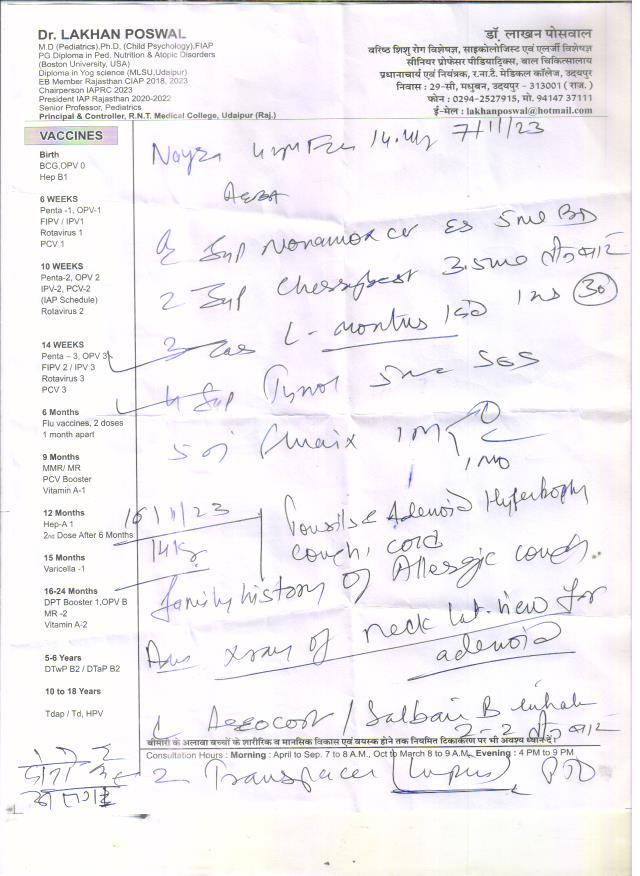 Dr. LAKHAN POSWAL
M.D (Pediatrics),Ph.D, (Child Psychology),FIAP
PG Diploma in Ped. Nutrition & Atopic Disorders
(Boston University, USA)
Diploma in Yog science (MLSU,Udaipur)
EB Member Rajasthan CIAP 2018, 2023
Chairperson IAPRC 2023
President IAP Rajasthan 2020-2022
Senior Professor, Pediatrics
Principal & Controller, R.N.T. Medical College, Udaipur (Raj.)
डॉ. लाखन पोसवाल
वरिष्ठ शिशु रोग विशेषज्ञ, साइकोलोजिस्ट एवं एलर्जी विशेषज्ञ
सीनियर प्रोफेसर पीडियाट्रिक्स, बाल चिकित्सालाय
प्रधानाचार्य एवं नियंत्रक, र.ना.टै. मेडिकल कॉलेज, उदयपुर
निवास : 29-सी, मधुबन, उदयपुर - 313001 ( राज. )
फोन : 0294-2527915, मो. 94147 37111
ई-मेल : lakhanposwal@hotmail.com
VACCINES
Birth
BCG,OPV 0
Hep B1
6 WEEKS
Penta -1, OPV-1
FIPV / IPV1
Rotavirus 1
PCV 1
10 WEEKS
Penta-2, OPV 2
IPV-2, PCV-2
(IAP Schedule)
Rotavirus 2
14 WEEKS
Penta – 3, OPV 3
FIPV 2 / IPV 3
Rotavirus 3
PCV 3
6 Months
Flu vaccines, 2 doses
1 month apart
9 Months
MMR/ MR
PCV Booster
Vitamin A-1
12 Months
Hep-A 1
2nd Dose After 6 Months
15 Months
Varicella -1
16-24 Months
DPT Booster 1,OPV B
MR -2
Vitamin A-2
5-6 Years
DTwP B2 / DTaP B2
10 to 18 Years
Tdap / Td, HPV
Nayra 14 7/11/23
Syp 5ml BD
2 Syp 3.5ml
3 L-montus 30
4 Syp 5ml SOS
5
16/11/23
14Kg
Tonsils & Adenoid Hypertrophy
cough, cold
family history of Allergic cough.
xray of neck lat. view for
adenoid
1 Aerocort / Salbair B inhaler
2-2
बीमारी के अलावा बच्चों के शारीरिक व मानसिक विकास एवं वयस्क होने तक नियमित टिकाकरण पर भी अवश्य ध्यान दें।
Consultation Hours : Morning : April to Sep. 7 to 8 A.M., Oct to March 8 to 9 A.M., Evening : 4 PM to 9 PM
2 Transpacer (Lupus)